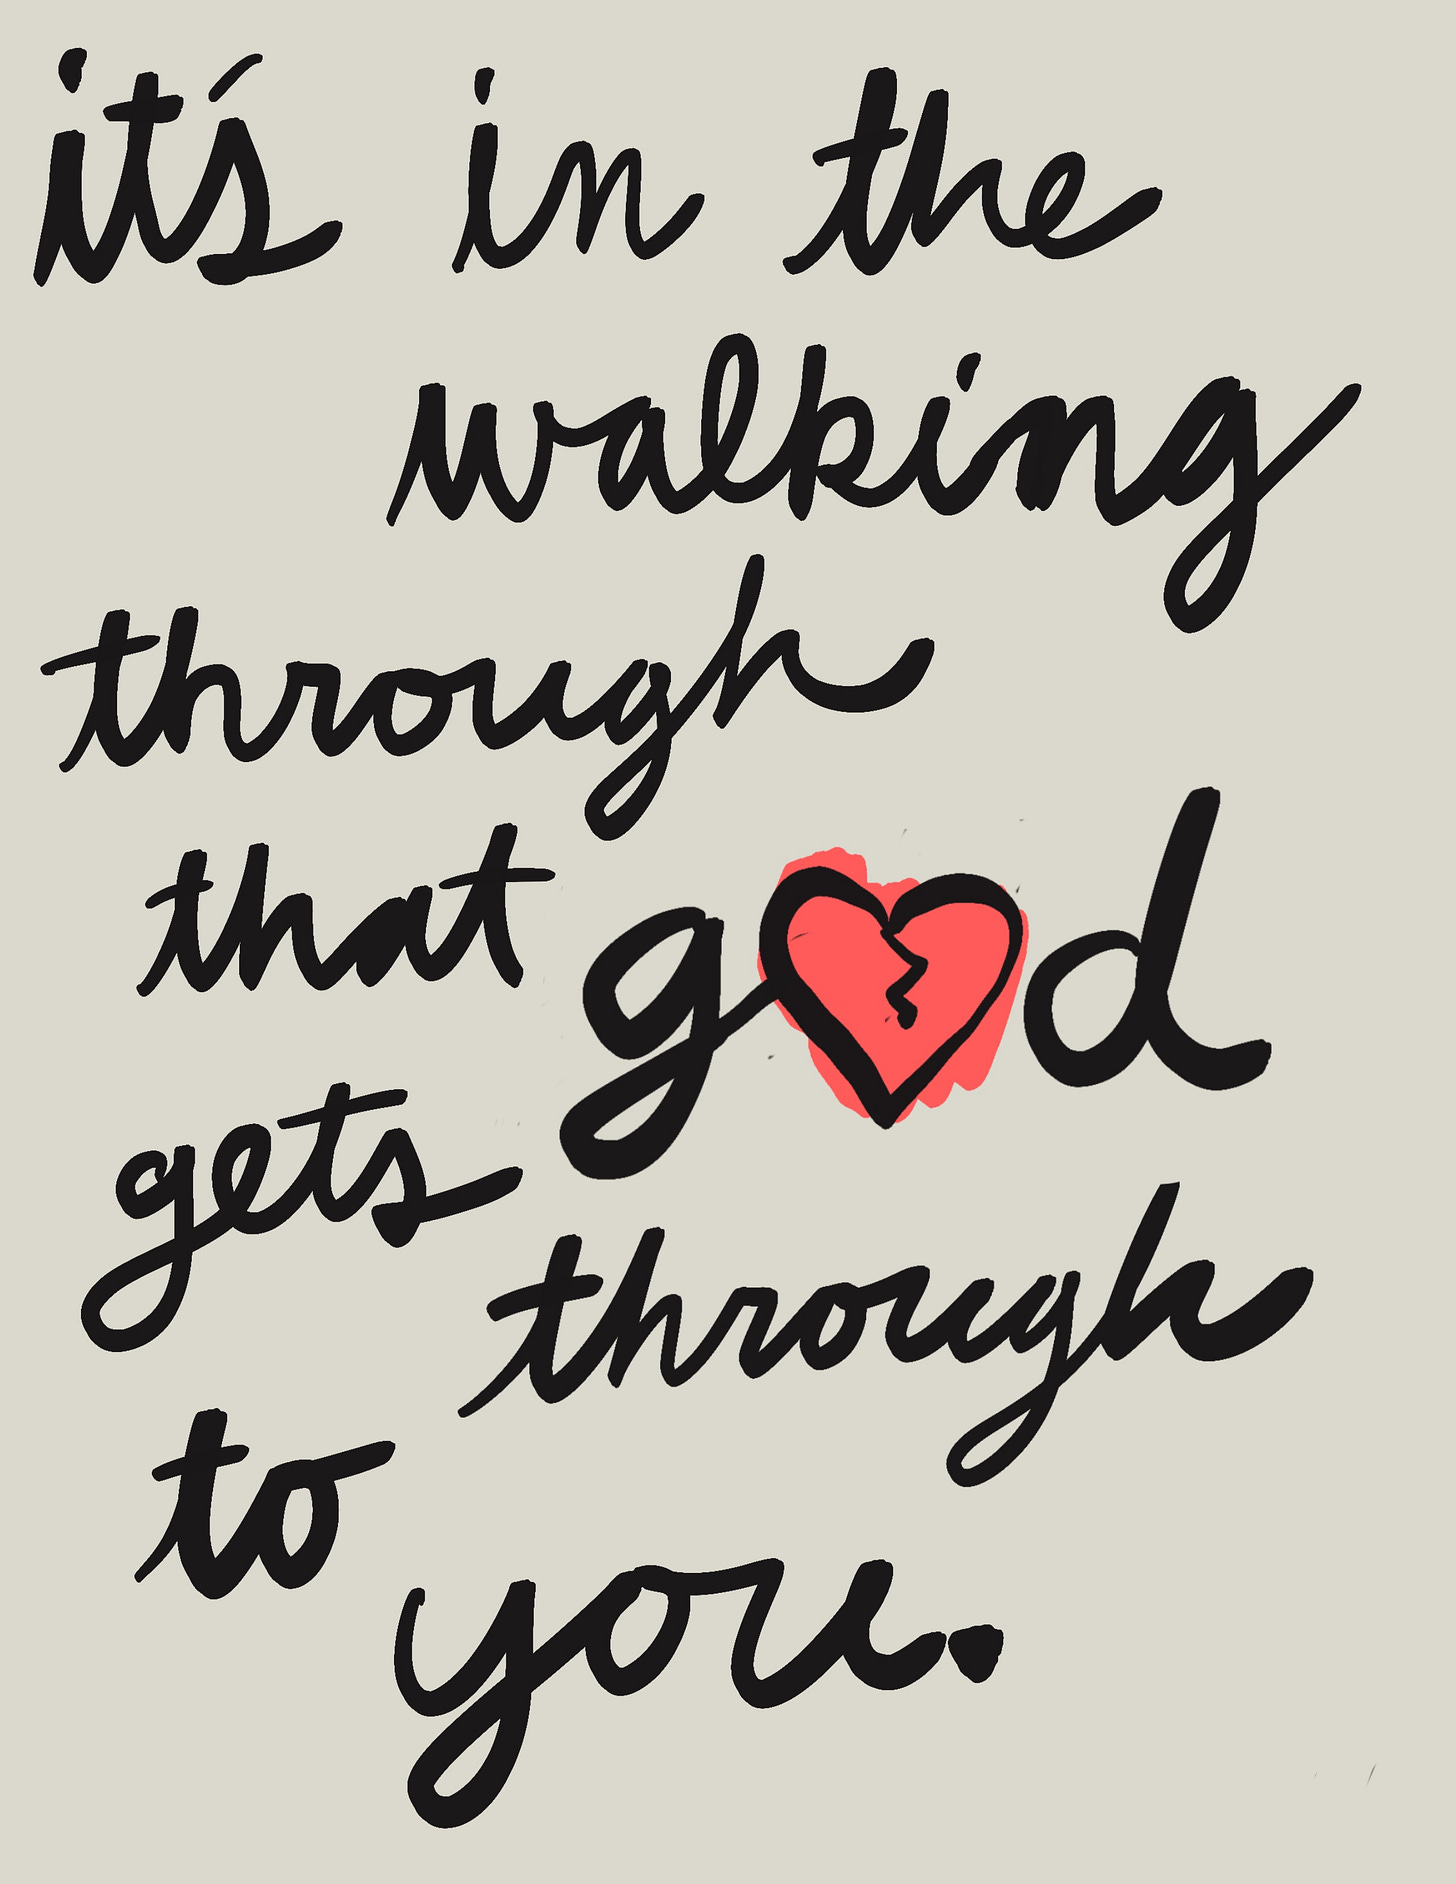 it's in the
walking
through
that g❤d
gets
through
to
you.